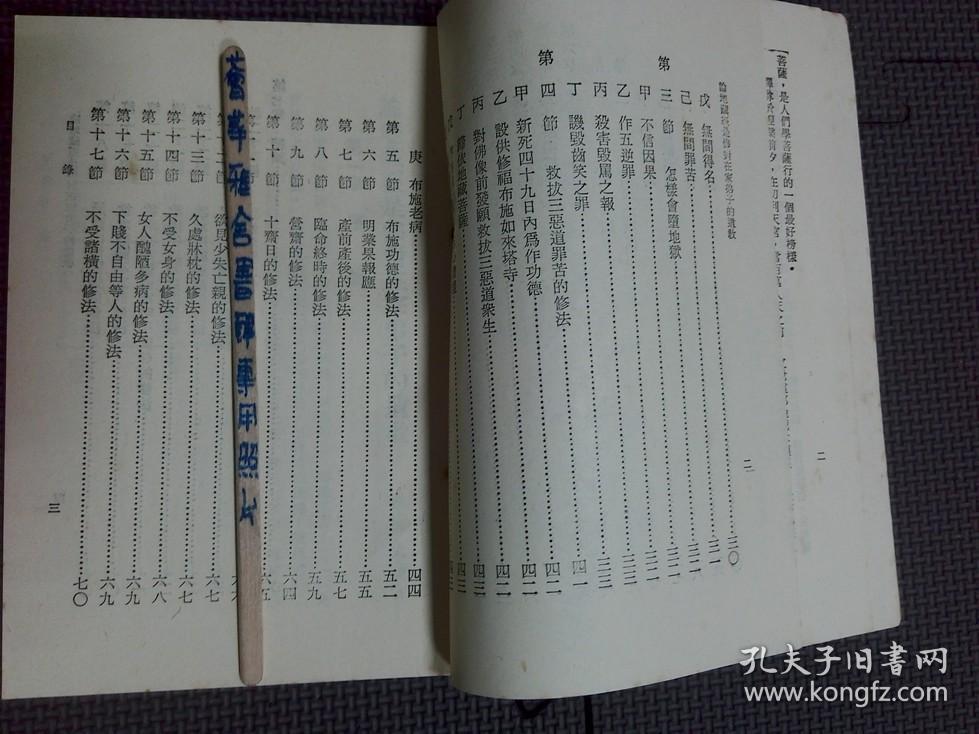 【菩薩，是人們學菩薩行的一個最好榜樣。
二
論地藏經是佛對在家弟子的遺教
二
戊 無間得名……三〇
己 無間罪苦……三一
第三節 怎樣會墮地獄……三一
甲 不信因果……三二
乙 作五逆罪……三三
丙 殺害毀罵之報……三三
丁 譏毀齒笑之罪……四一
第四節 救拔三惡道罪苦的修法……四二
甲 新死四十九日內爲作功德……四二
乙 設供修福布施如來塔寺……四二
丙 對佛像前發願救拔三惡道衆生……四三
丁
地藏菩薩……四三
庚 布施老病……四四
第五節 布施功德的修法……五二
第六節 明業果報應……五五
第七節 產前產後的修法……五七
第八節 臨命終時的修法……五九
第九節 營齋的修法……六四
第十節 十齋日的修法……六五
欲見少失亡親的修法……六七
第十三節 久處牀枕的修法……六七
第十四節 不受女身的修法……六八
第十五節 女人醜陋多病的修法……六九
第十六節 下賤不自由等人的修法……六九
第十七節 不受諸橫的修法……七〇
目錄
三
薈華雅舍書碑專用照片
孔夫子旧书网
www.kongfz.com